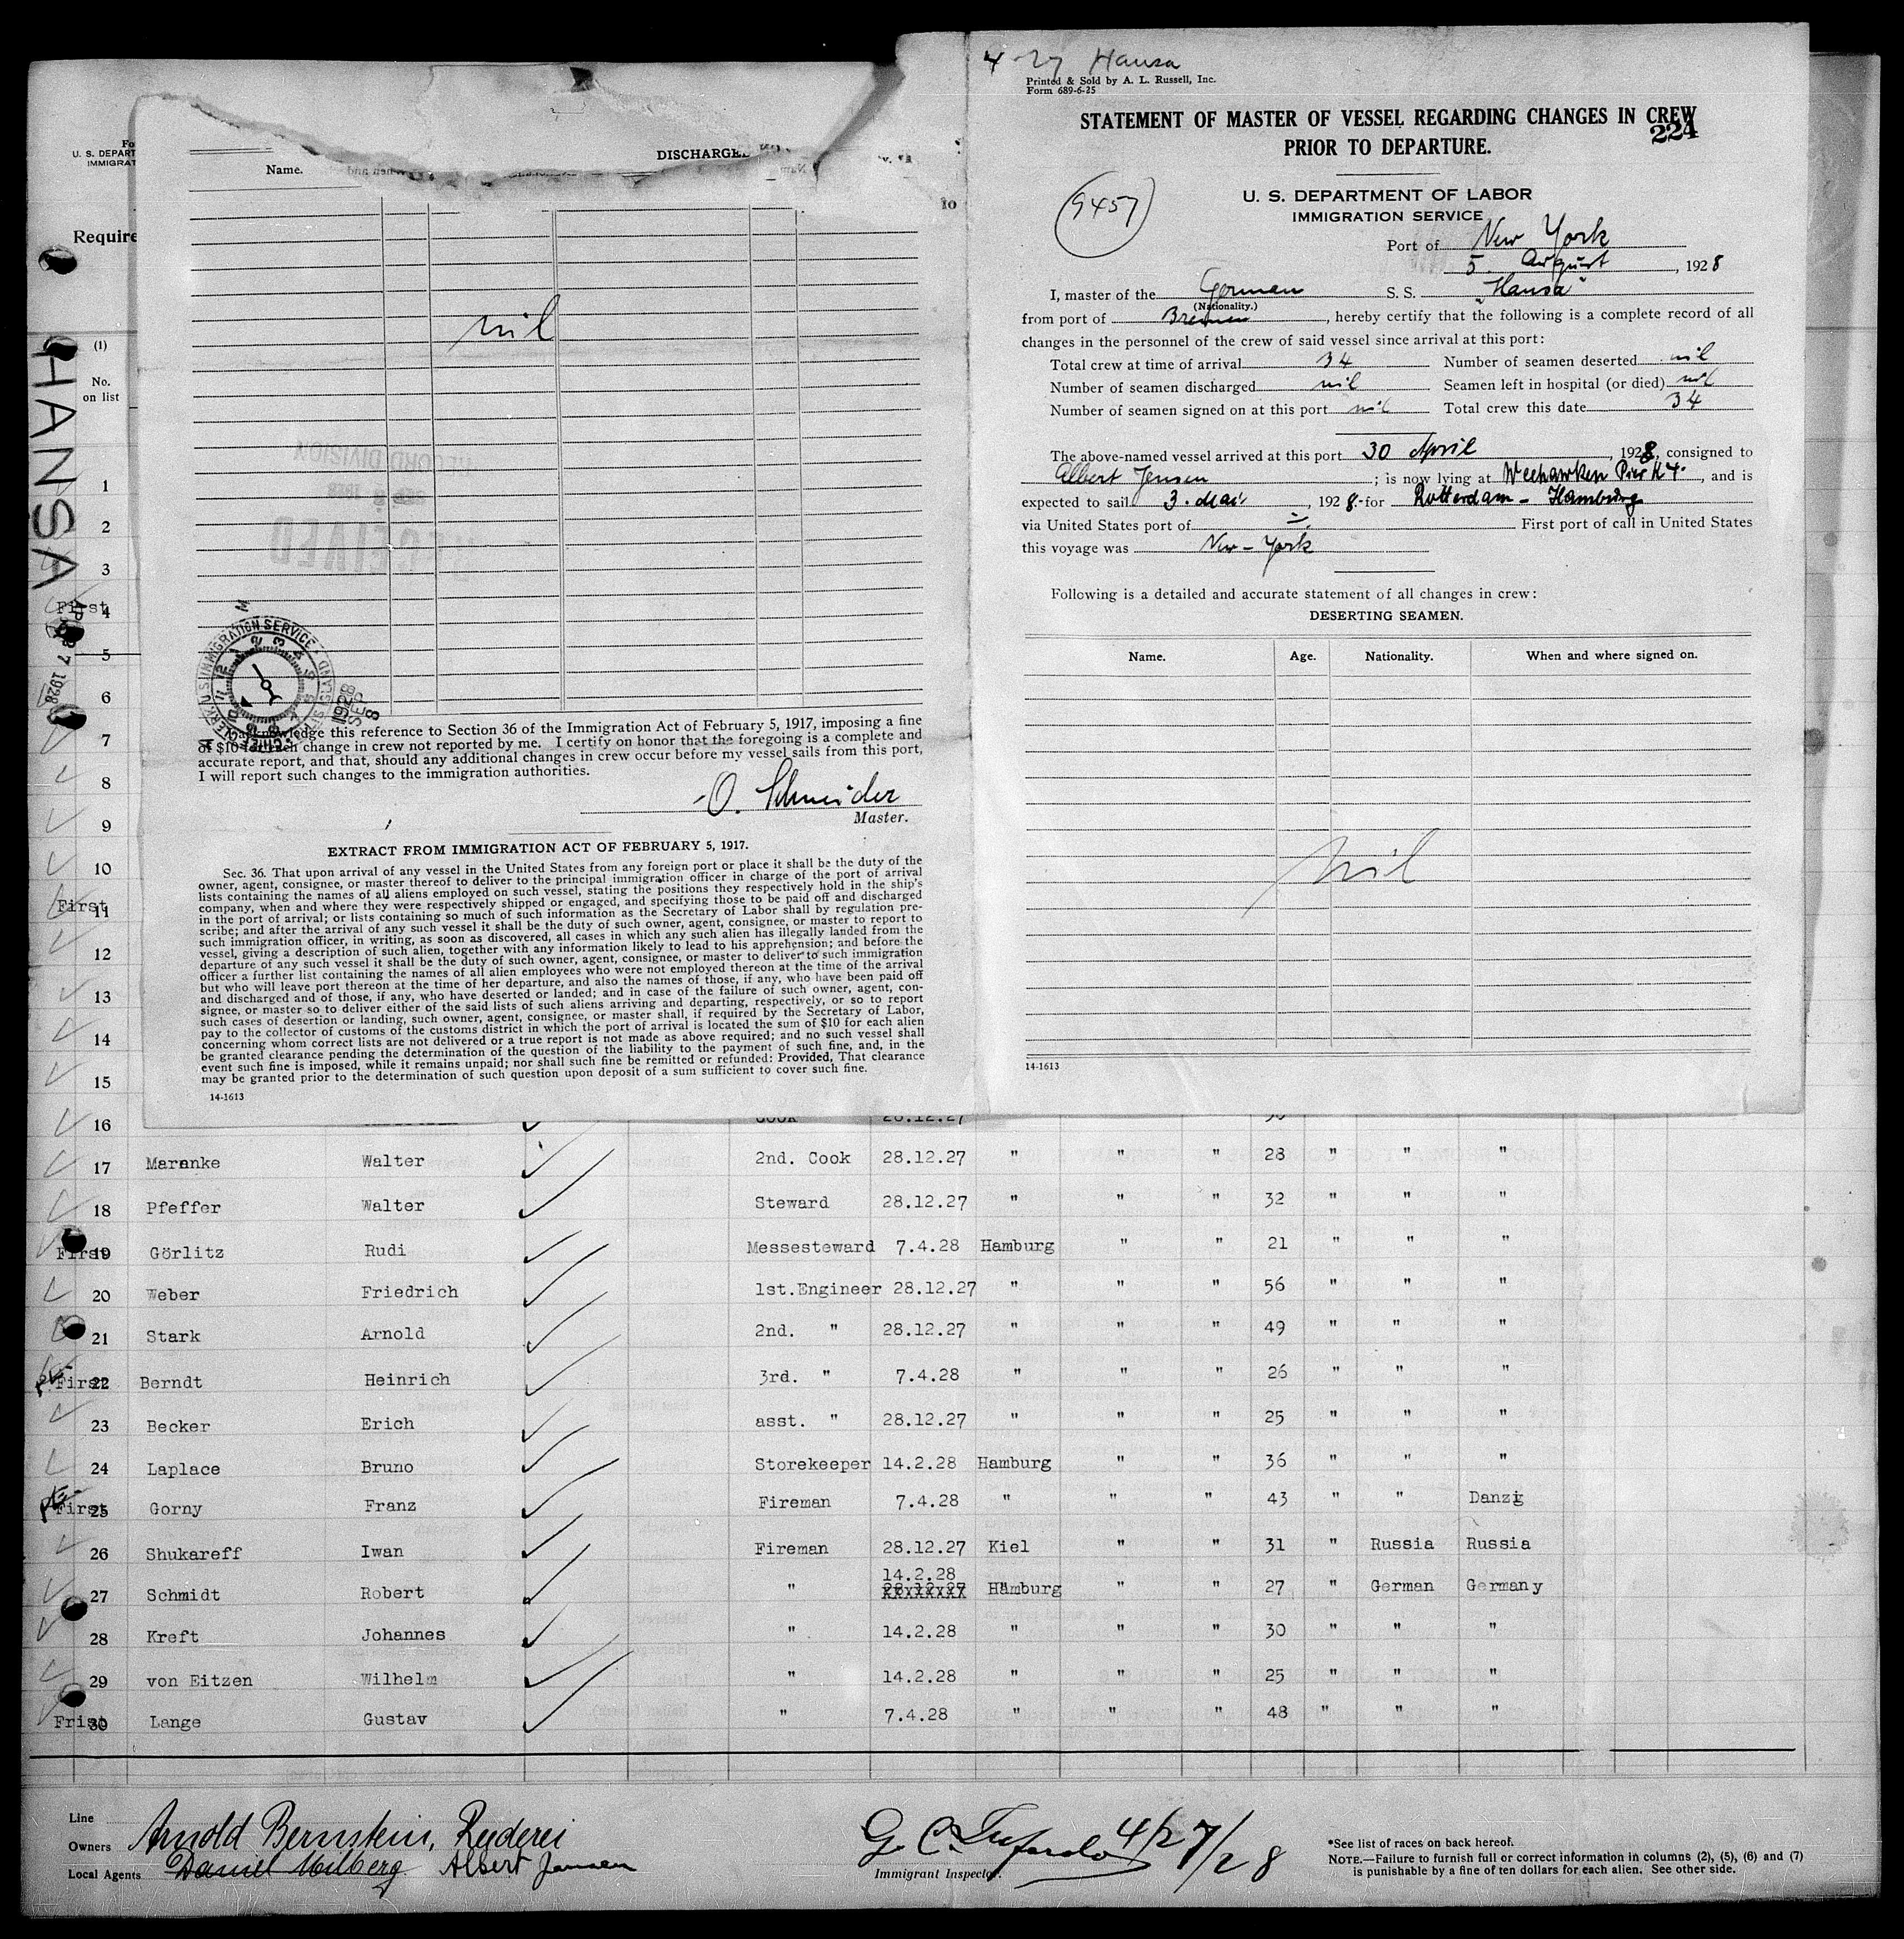 4-27 Hansa
Printed & Sold by A. L. Russell, Inc.
Form 689-6-25
STATEMENT OF MASTER OF VESSEL REGARDING CHANGES IN CREW
PRIOR TO DEPARTURE.
224
9457
U. S. DEPARTMENT OF LABOR
IMMIGRATION SERVICE
Port of New York
5. August, 1928
I, master of the German S. S. "Hansa"
(Nationality.)
from port of Bremen, hereby certify that the following is a complete record of all
changes in the personnel of the crew of said vessel since arrival at this port:
Total crew at time of arrival 34 Number of seamen deserted nil
Number of seamen discharged nil Seamen left in hospital (or died) nil
Number of seamen signed on at this port nil Total crew this date 34
The above-named vessel arrived at this port 30 April, 1928, consigned to
Albert Jensen; is now lying at Weehawken Pier K 4, and is
expected to sail 3. Mai, 1928 for Rotterdam - Hamburg
via United States port of First port of call in United States
this voyage was New-York
Following is a detailed and accurate statement of all changes in crew:
DESERTING SEAMEN.
Name. Age. Nationality. When and where signed on.
nil
14-1613
U. S. DEPART
IMMIGRAT
Require
HANSA
APR 27 1928
(1)
No.
on list
DISCHARGE
Name.
nil
RECORD DIVISION
SEP 8 1928
RECEIVED
U.S. IMMIGRATION SERVICE
1928 SEP 8
I acknowledge this reference to Section 36 of the Immigration Act of February 5, 1917, imposing a fine
of $10 for each change in crew not reported by me. I certify on honor that the foregoing is a complete and
accurate report, and that, should any additional changes in crew occur before my vessel sails from this port,
I will report such changes to the immigration authorities.
O. Schneider
Master.
EXTRACT FROM IMMIGRATION ACT OF FEBRUARY 5, 1917.
Sec. 36. That upon arrival of any vessel in the United States from any foreign port or place it shall be the duty of the
owner, agent, consignee, or master thereof to deliver to the principal immigration officer in charge of the port of arrival
lists containing the names of all aliens employed on such vessel, stating the positions they respectively hold in the ship's
company, when and where they were respectively shipped or engaged, and specifying those to be paid off and discharged
in the port of arrival; or lists containing so much of such information as the Secretary of Labor shall by regulation pre-
scribe; and after the arrival of any such vessel it shall be the duty of such owner, agent, consignee, or master to report to
such immigration officer, in writing, as soon as discovered, all cases in which any such alien has illegally landed from the
vessel, giving a description of such alien, together with any information likely to lead to his apprehension; and before the
departure of any such vessel it shall be the duty of such owner, agent, consignee, or master to deliver to such immigration
officer a further list containing the names of all alien employees who were not employed thereon at the time of the arrival
but who will leave port thereon at the time of her departure, and also the names of those, if any, who have been paid off
and discharged and of those, if any, who have deserted or landed; and in case of the failure of such owner, agent, con-
signee, or master so to deliver either of the said lists of such aliens arriving and departing, respectively, or so to report
such cases of desertion or landing, such owner, agent, consignee, or master shall, if required by the Secretary of Labor,
pay to the collector of customs of the customs district in which the port of arrival is located the sum of $10 for each alien
concerning whom correct lists are not delivered or a true report is not made as above required; and no such vessel shall
be granted clearance pending the determination of the question of the liability to the payment of such fine, and, in the
event such fine is imposed, while it remains unpaid; nor shall such fine be remitted or refunded: Provided, That clearance
may be granted prior to the determination of such question upon deposit of a sum sufficient to cover such fine.
14-1613
1
2
3
First 4
5
6
7
8
9
10
First 11
12
13
14
15
16 Cook 28.12.27
17 Maranke Walter 2nd. Cook 28.12.27 " " " 28 " " "
18 Pfeffer Walter Steward 28.12.27 " " " 32 " " "
First 19 Görlitz Rudi Messesteward 7.4.28 Hamburg " " 21 " " "
20 Weber Friedrich 1st.Engineer 28.12.27 " " " 56 " " "
21 Stark Arnold 2nd. " 28.12.27 " " " 49 " " "
First 22 Berndt Heinrich 3rd. " 7.4.28 " " " 26 " " "
23 Becker Erich asst. " 28.12.27 " " " 25 " " "
24 Laplace Bruno Storekeeper 14.2.28 Hamburg " " 36 " " "
First 25 Gorny Franz Fireman 7.4.28 " " " 43 " " Danzig
26 Shukareff Iwan Fireman 28.12.27 Kiel " " 31 " Russia Russia
14.2.28
27 Schmidt Robert " 28.12.27 Hamburg " " 27 " German Germany
28 Kreft Johannes " 14.2.28 " " " 30 " " "
29 von Eitzen Wilhelm " 14.2.28 " " " 25 " " "
Frist 30 Lange Gustav " 7.4.28 " " " 48 " " "
Line
Owners Arnold Bernstein, Rederei
Local Agents Daniel Milberg Albert Jensen
4/27/28
Immigrant Inspector.
*See list of races on back hereof.
NOTE.—Failure to furnish full or correct information in columns (2), (5), (6) and (7)
is punishable by a fine of ten dollars for each alien. See other side.